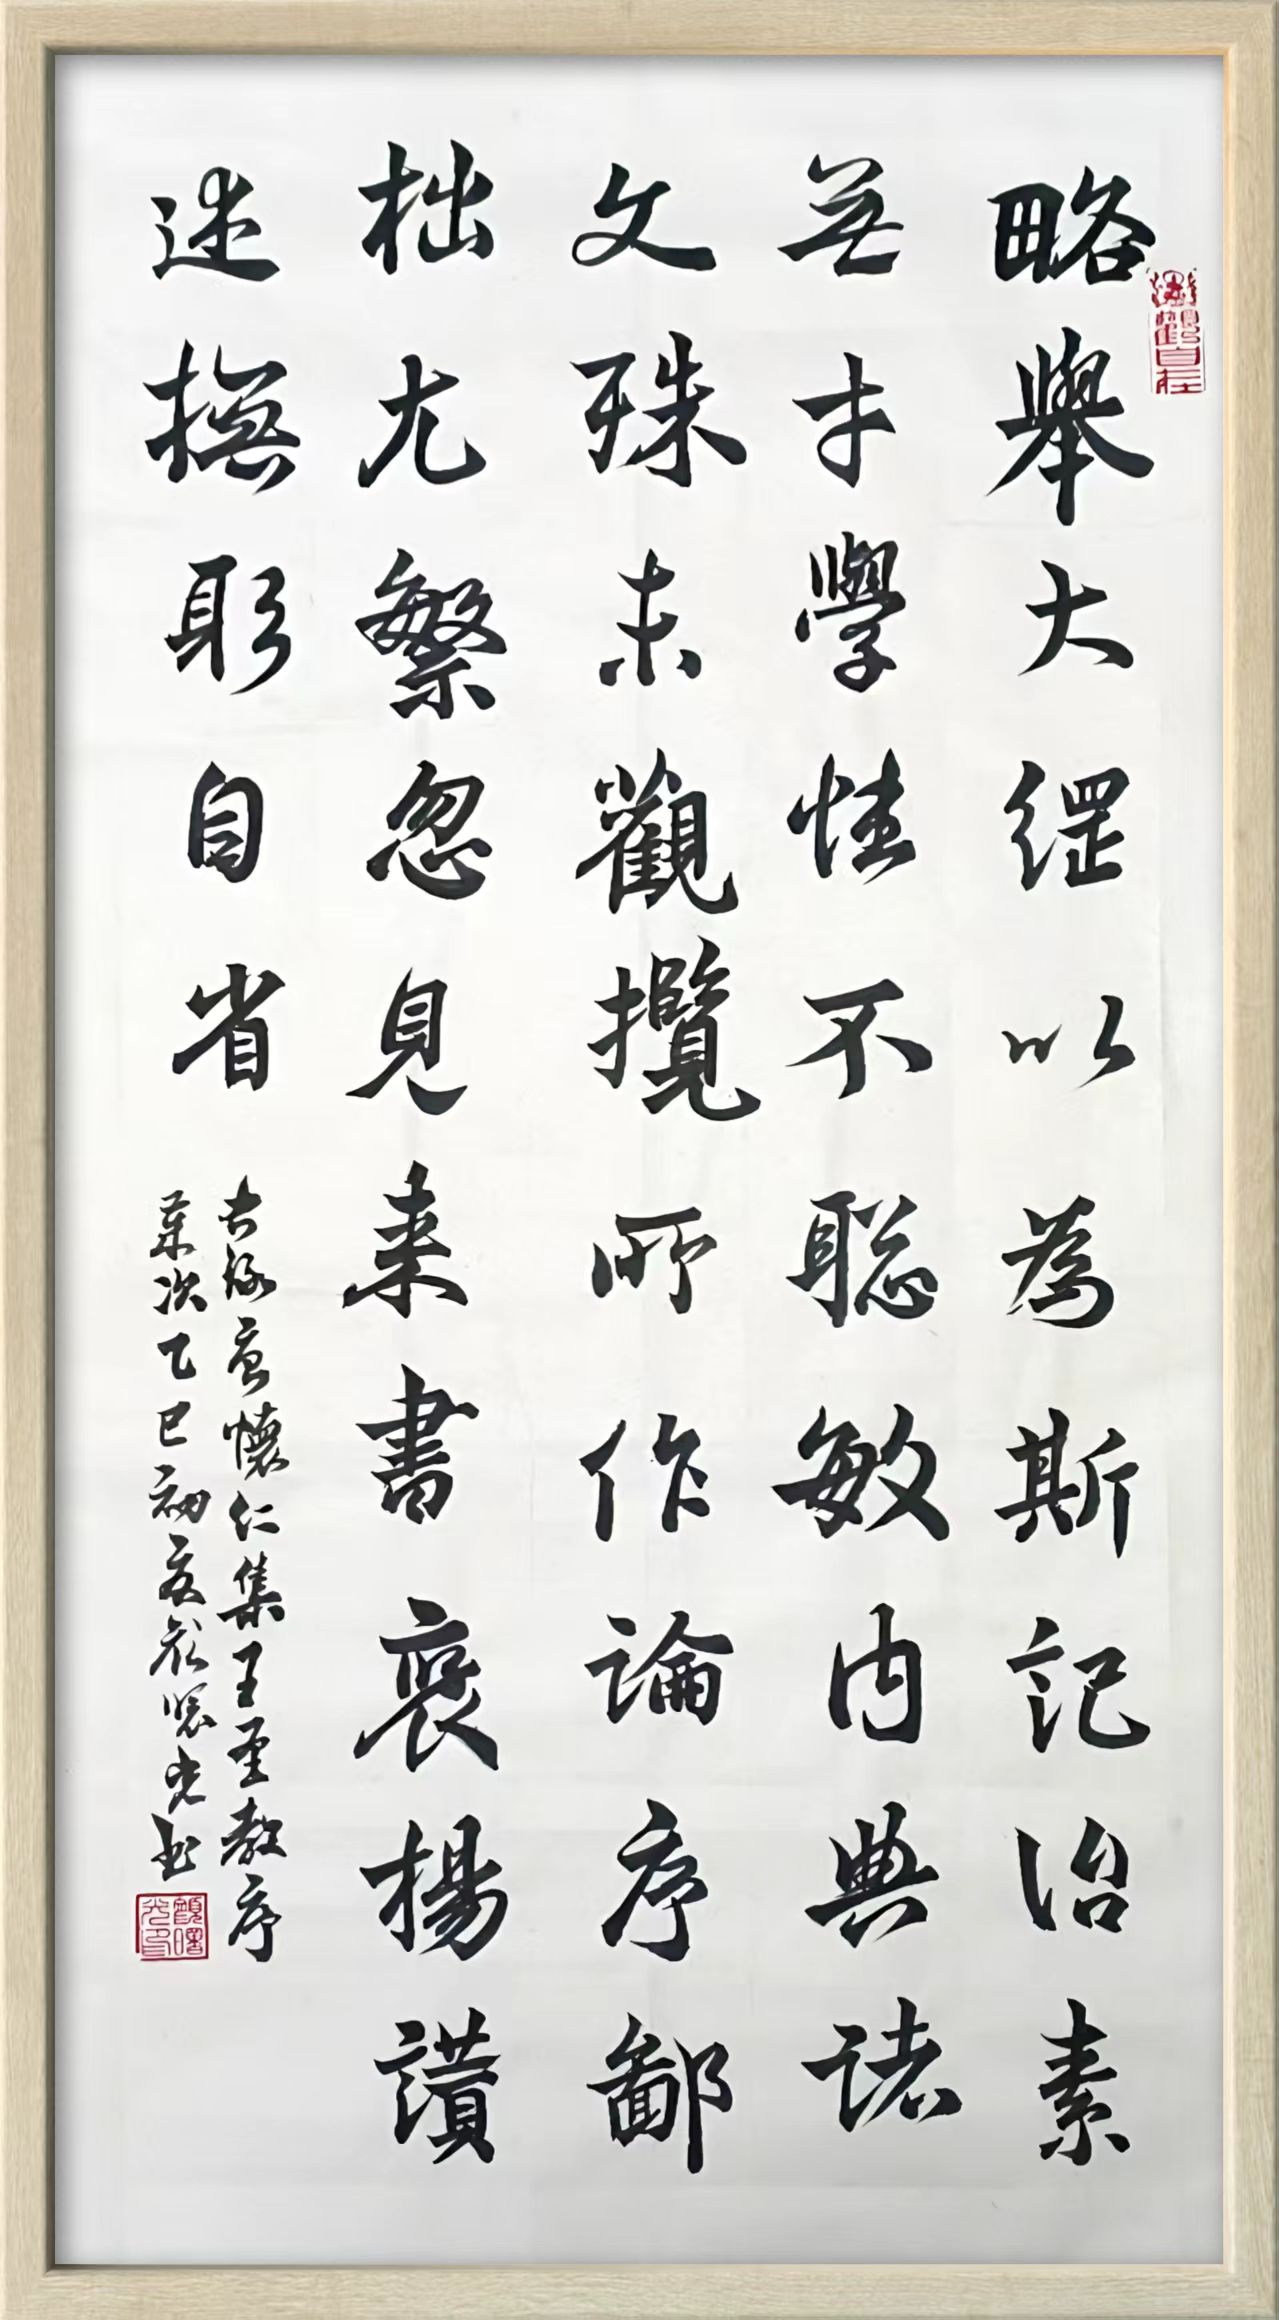 略舉大綱以為斯記治素
無才學性不聰敏内典諸
文殊未觀攬所作論序鄙
拙尤繁忽見来書褒揚讃
述撫躬自省
唐懷仁集王聖教序
歲次乙巳初夏顏曙光書
顏曙光印